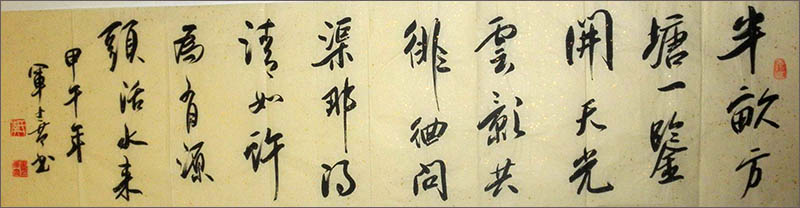 半畝方
塘一鑒
開天光
雲影共
徘徊問
渠那得
清如許
為有源
頭活水来
甲午年
軍 书